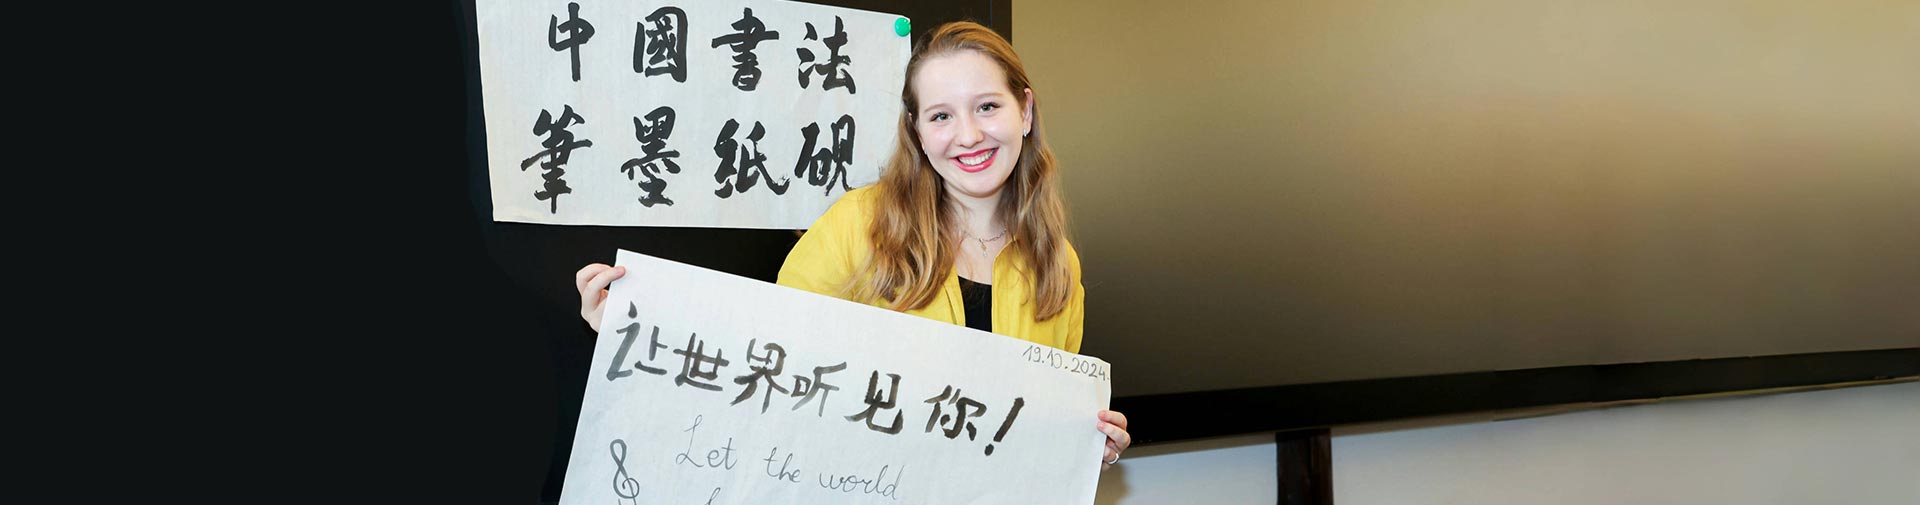 中國書法
筆墨紙硯
19.10.2024.
让世界听见你!
Let the world